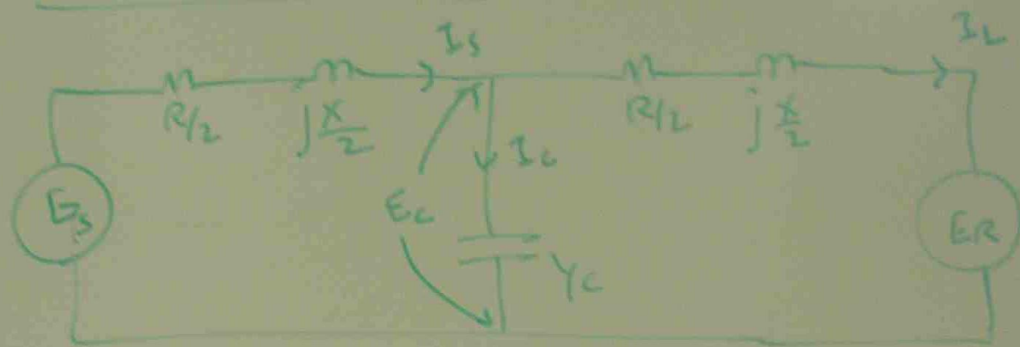 I_S
I_L
R/2
j X/2
R/2
j X/2
I_C
E_S
E_C
E_R
Y_C